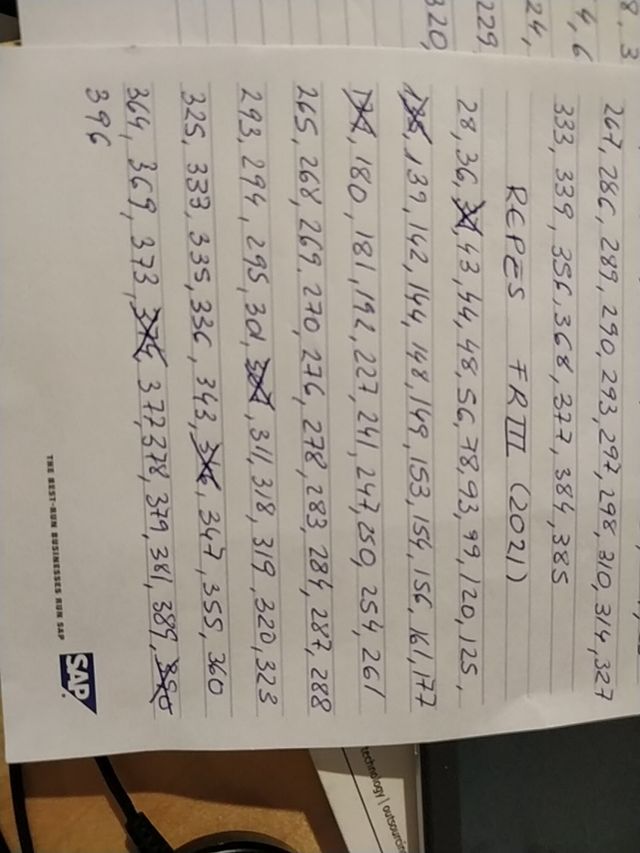 8, 3
4, 6
24,
229
320,
267, 286, 289, 290, 293, 297, 298, 310, 314, 327
333, 339, 356, 368, 377, 384, 385
REPES FRIII (2021)
28, 36, 43, 44, 48, 56, 78, 93, 99, 120, 125,
139, 142, 144, 148, 149, 153, 154, 156, 161, 177
180, 181, 192, 227, 241, 247, 250, 254, 261
265, 268, 269, 270, 276, 278, 283, 284, 287, 288
293, 294, 295, 301, 311, 318, 319, 320, 323
325, 333, 335, 336, 343, 347, 355, 360
364, 369, 373, 377, 378, 379, 381, 389,
396
THE BEST-RUN BUSINESSES RUN SAP
SAP
technology | outsourcing